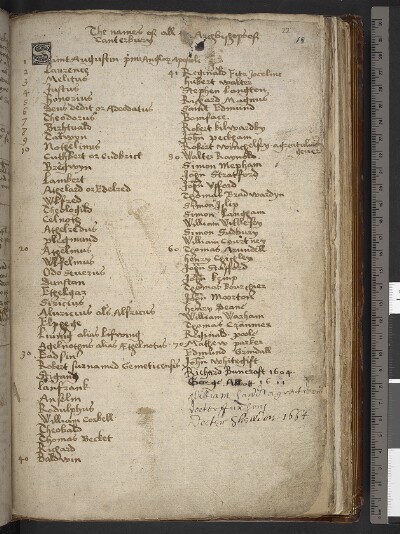 The names of all Archbishops of
Canterbury
22
18
1 Saint Augustin
2 Laurence
3 Melitus
4 Justus
5 Honorius
6 Deus dedit or Adeodatus
7 Theodorus
8 Birthuald
9 Tatwyn
10 Nothelinus
Cuthbert or Cudbrict
Bregwyn
Lambert
Athelard or Edelred
Wlfred
Theologild
Celnoth
Athelredus
Plegmund
20 Athelmus
Wlfelmus
Odo Severus
Dunstan
Ethelgar
Siricius
Aluricius als Alfricus
Elphege
Living alias Lifwing
Agelnothus alias Aegelnotus
30 Eadsin
Robert surnamed Gemeticensis
Stigand
Lanfrank
Anselm
Rodulphus
William Corbell
Theobald
Thomas Becket
Richard
40 Baldwin
41 Reginald Fitz Joceline
Hubert Walter
Stephen Langton
Richard Magnus
Saint Edmund
Boniface
Robert Kilwardby
John Peckam
Robert Winchelsey
50 Walter Raynold
Simon Mepham
John Stratford
John Ufford
Thomas Bradwardyn
Simon Islip
Simon Langham
William Wittlesey
Simon Sudbury
William Courtney
60 Thomas Arundell
Henry Chicheley
John Stafford
John Kemp
Thomas Bourchier
John Morton
Henry Deane
William Warham
Thomas Cranmer
Reginald Poole
70 Mathew Parker
Edmund Grindall
John Whitegift
Richard Bancroft 1604
George Abbott 1611
William
Doctor
Doctor Sheldon 1634